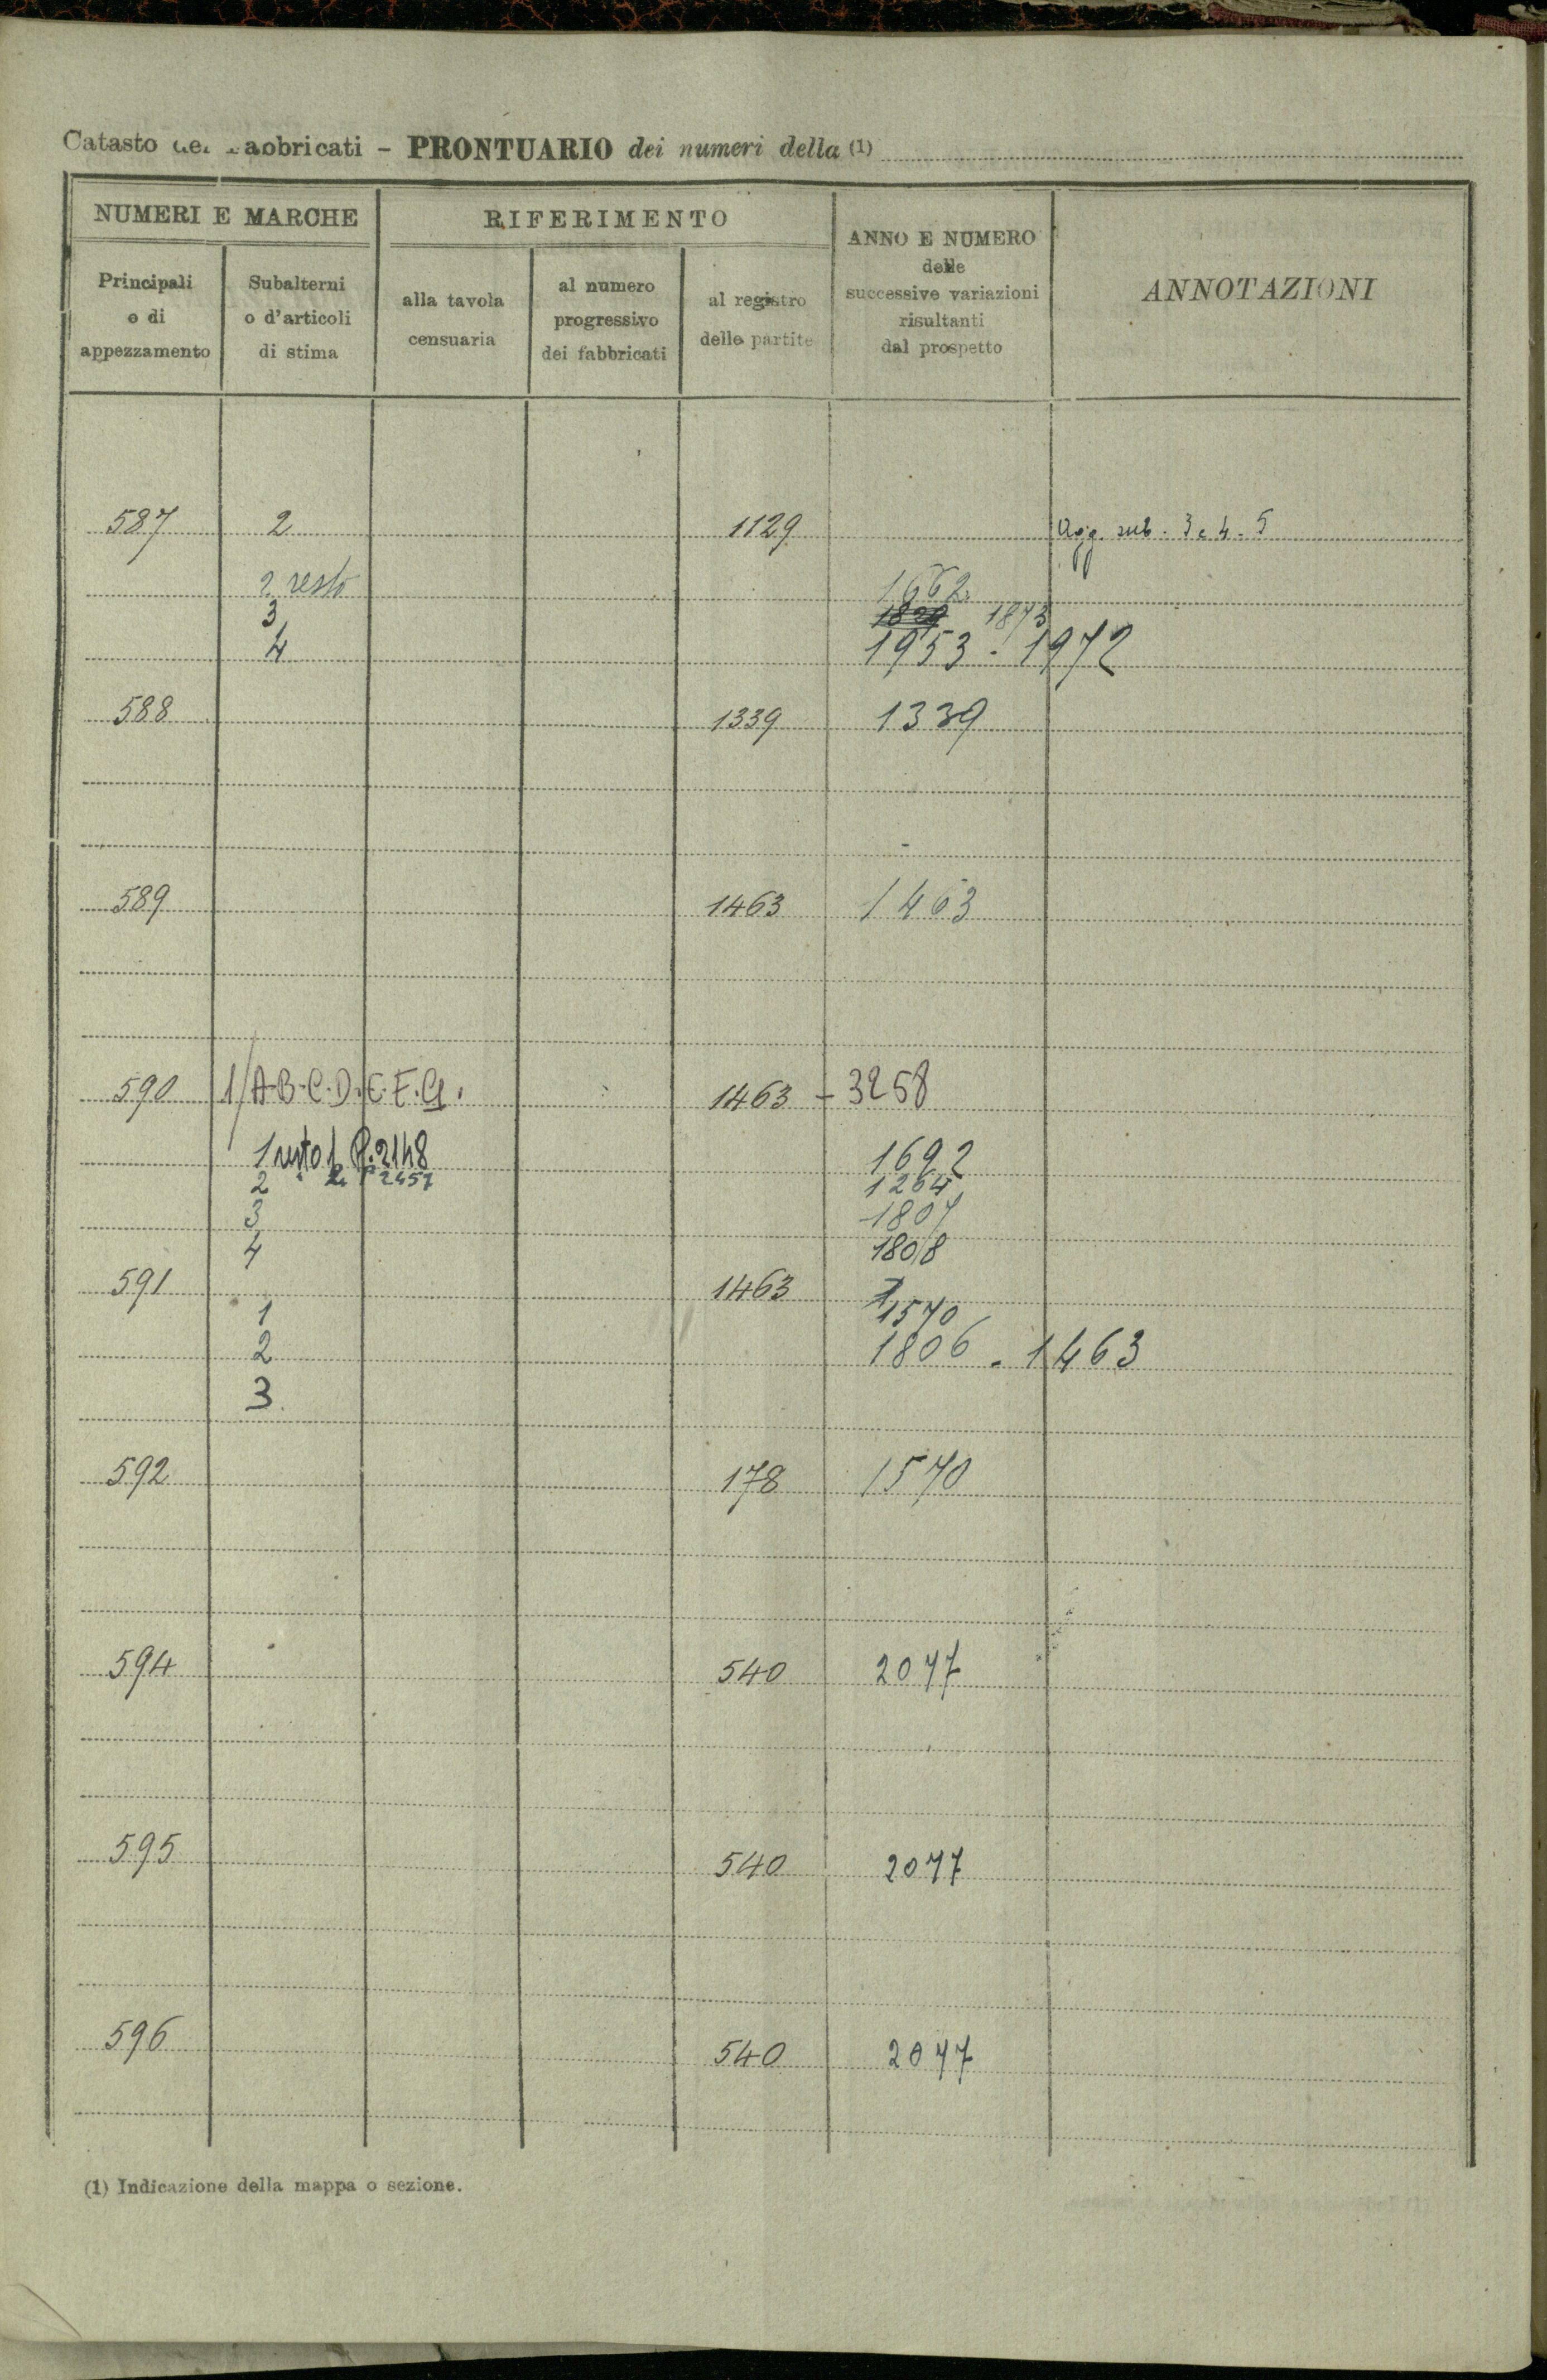 Catasto dei Fabbricati - PRONTUARIO dei numeri della (1)
NUMERI E MARCHE
RIFERIMENTO
ANNO E NUMERO
delle
successive variazioni
risultanti
dal prospetto
ANNOTAZIONI
Principali
e di
appezzamento
Subalterni
o d'articoli
di stima
alla tavola
censuaria
al numero
progressivo
dei fabbricati
al registro
delle partite
587 2 1129 Agg. sub. 3 e 4 - 5
2 resto 1662
3 1873
4 1953 - 1972
588 1339 1339
589 1463 1463
590 1/A-B-C-D.E.F.G. 1463 - 3258
1 resto 1 P. 2148 1692
2 " 2 P 2457 1264
3 1807
4 1808
591 1463
1 1570
2 1806 - 1463
3
592 178 1570
594 540 2077
595 540 2077
596 540 2077
(1) Indicazione della mappa o sezione.